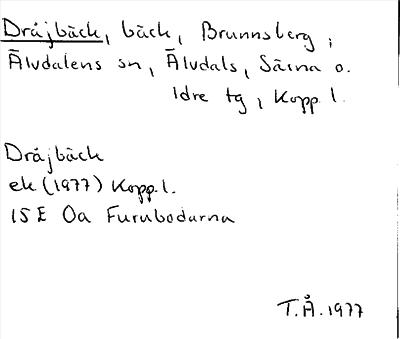 Dråjbäck, bäck, Brunnsberg,
Älvdalens sn, Älvdals, Särna o.
Idre tg, Kopp. l.
Dråjbäck
ek (1977) Kopp. l.
15E 0a Furubodarna
T.Å. 1977